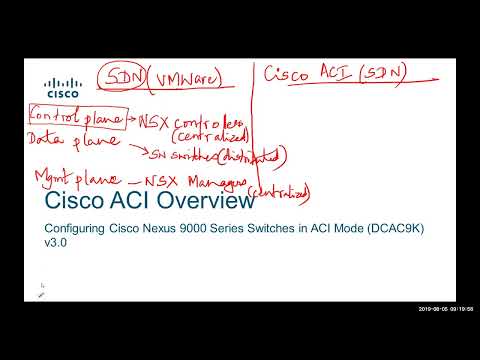 SDN (VMWare)
Cisco ACI (SDN)
CISCO
Control plane → NSX controllers
(centralized)
Data plane
→ SN switches (distributed)
Mgmt plane - NSX Managers
(centralized)
Cisco ACI Overview
Configuring Cisco Nexus 9000 Series Switches in ACI Mode (DCAC9K)
v3.0
2019-08-05 09:19:58